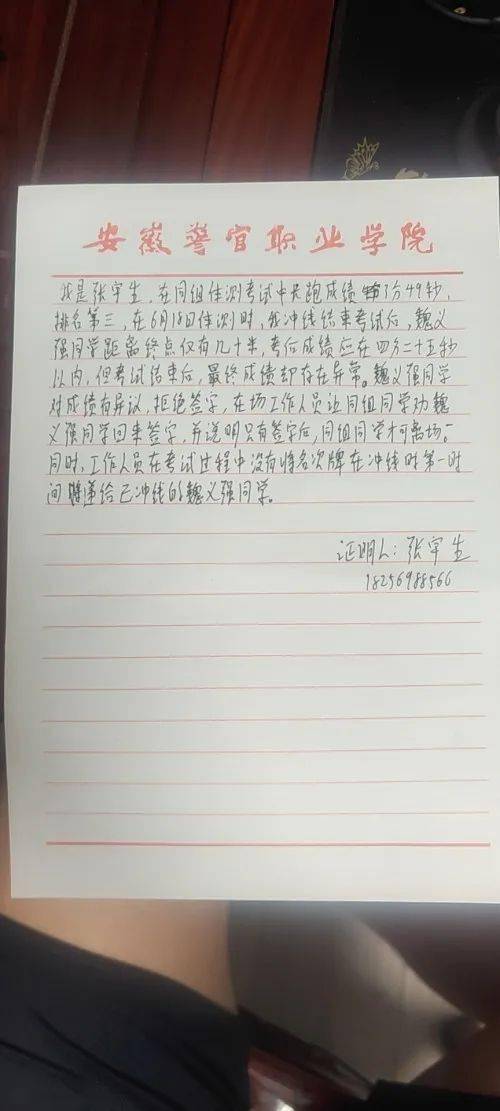 安徽警官职业学院
我是张宇生，在同组体测考试中长跑成绩3分49秒，
排名第三，在6月18日体测时，我冲线结束考试后，魏义
强同学距离终点仅有几十米，考后成绩应在四分二十五秒
以内，但考试结束后，最终成绩却存在异常。魏义强同学
对成绩有异议，拒绝签字，在场工作人员让同组同学劝魏
义强同学回来签字，并说明只有签字后，同组同学才可离场。
同时，工作人员在考试过程中没有将名次牌在冲线时第一时
间递给已冲线的魏义强同学。
证明人：张宇生
18256988566